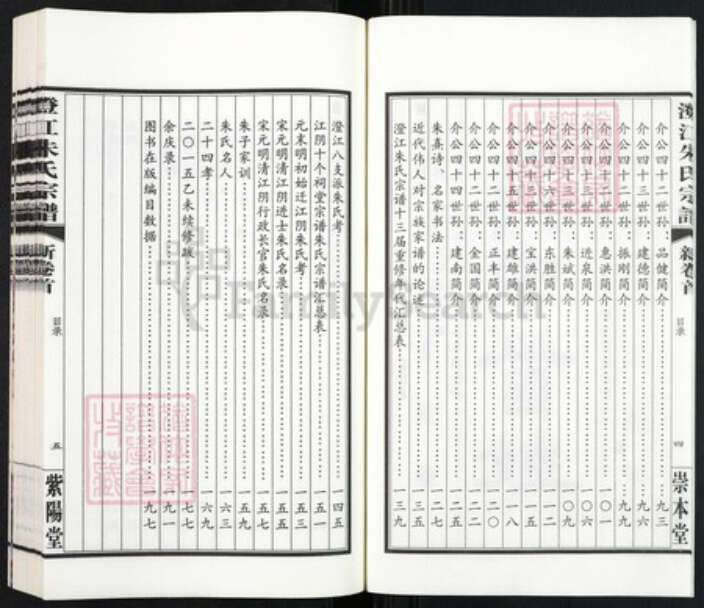 澄江朱氏宗譜 新卷首 目录 四 崇本堂
介公四十二世孙 品健简介……九三
介公四十三世孙 建德简介……九六
介公四十二世孙 振刚简介……九九
介公四十二世孙 惠洪简介……一〇一
介公四十三世孙 近泉简介……一〇六
介公四十三世孙 朱斌简介……一〇九
介公四十二世孙 东胜简介……一一二
介公四十三世孙 宝洪简介……一一五
介公四十五世孙 建雄简介……一一八
介公四十二世孙 金国简介……一二〇
介公四十二世孙 正丰简介……一二二
介公四十四世孙 建南简介……一二五
朱熹诗、名家书法……一二七
近代伟人对宗族家谱的论述……一三五
澄江朱氏宗谱十三届重修年代汇总表……一三九
澄江八支派朱氏考……一四五
江阴十个祠堂宗谱朱氏宗谱汇总表……一五一
元末明初始迁江阴朱氏考……一五三
宋元明清江阴进士朱氏名录……一五五
宋元明清江阴行政长官朱氏名录……一五七
朱子家训……一五九
朱氏名人……一六三
二十四孝……一六九
二〇一五乙未续修跋……一七七
余庆录……一九一
图书在版编目数据……一九七
澄江朱氏宗譜 新卷首 目录 五 紫陽堂
FamilySearch